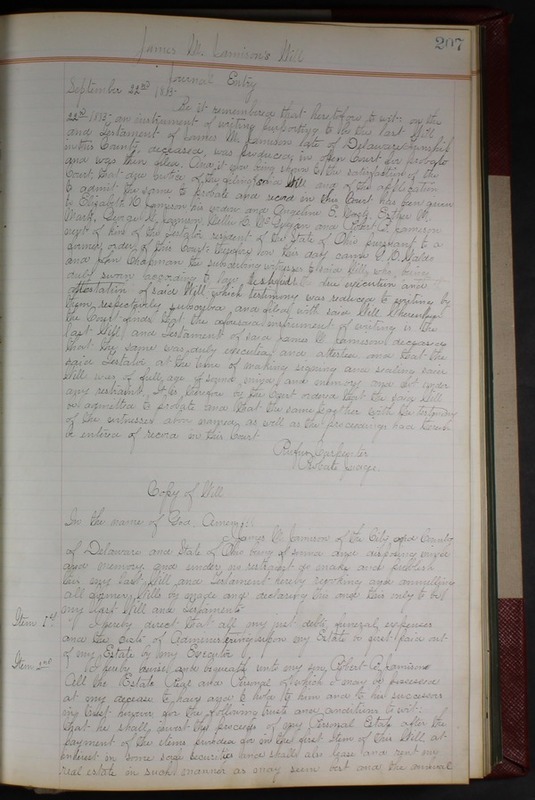 207
James M. Jamison's Will
Journal Entry
September 22nd 1883.
Be it remembered that heretofore to wit: on the
22nd 1883, an instrument of writing purporting to be the last Will
and Testament of James M. Jamison late of Delaware Township
in this County, deceased, was produced in open Court for probate
and was then filed. And it now being shown to the satisfaction of the
Court that due notice of the filing of said Will and of the application
to admit the same to probate and record in this Court has been given
to Elizabeth Jamison his widow and Angeline S. Mark, Esther M.
Mark, George Jamison, and Robert E. Jamison
next of kin of the Testator resident of the State of Ohio pursuant to a
former order of this Court. Thereupon on this day came
and Chapman the subscribing witnesses to said Will, who, being
duly sworn according to law testified to the due execution and
attestation of said Will which testimony was reduced to writing by
them respectively subscribed and filed with said Will. Whereupon
the Court finds that the aforesaid instrument of writing is the
last Will and Testament of said James M. Jamison deceased
that the same was duly executed and attested and that the
said Testator at the time of making signing and sealing said
Will was of full age of sound mind and memory and not under
any restraint. It is therefore by the Court ordered that the said Will
be admitted to probate and that the same together with the testimony
of the witnesses above named, as well as the proceedings had therein
be entered of record in this Court.
Rufus Carpenter
Probate Judge.
Copy of Will
In the name of God, Amen;
I James M. Jamison of the City and County
of Delaware and State of Ohio being of sound and disposing mind
and memory and under no restraint do make and publish
this my last Will and Testament hereby revoking and annulling
all former Wills by made and declaring this and this only to be
my last Will and Testament.
Item 1st I hereby direct that all my just debts funeral expenses
and the costs of Administering upon my Estate be first paid out
of my Estate by my Executor
Item 2nd I hereby devise and bequeath unto my son Robert E. Jamison
All the Estate Real and Personal of which I may be possessed
at my decease to have and to hold to him and to his successor
in trust however for the following trusts and conditions to wit:
That he shall invest the proceeds of my Personal Estate after the
payment of the items provided for in the first Item of this Will at
interest in some safe securities and shall also lease and rent my
real estate in such manner as may seem best and the annual